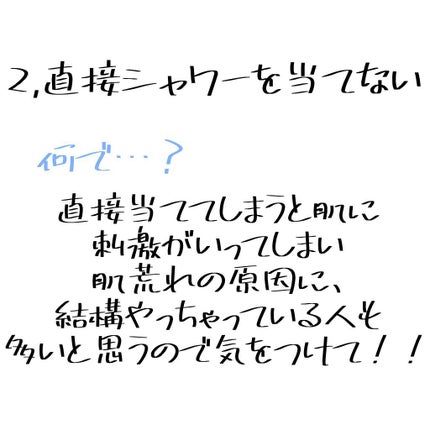 2,直接シャワーを当てない
何で…?
直接当ててしまうと肌に
刺激がいってしまい
肌荒れの原因に、
結構やっちゃっている人も
多いと思うので気をつけて!!